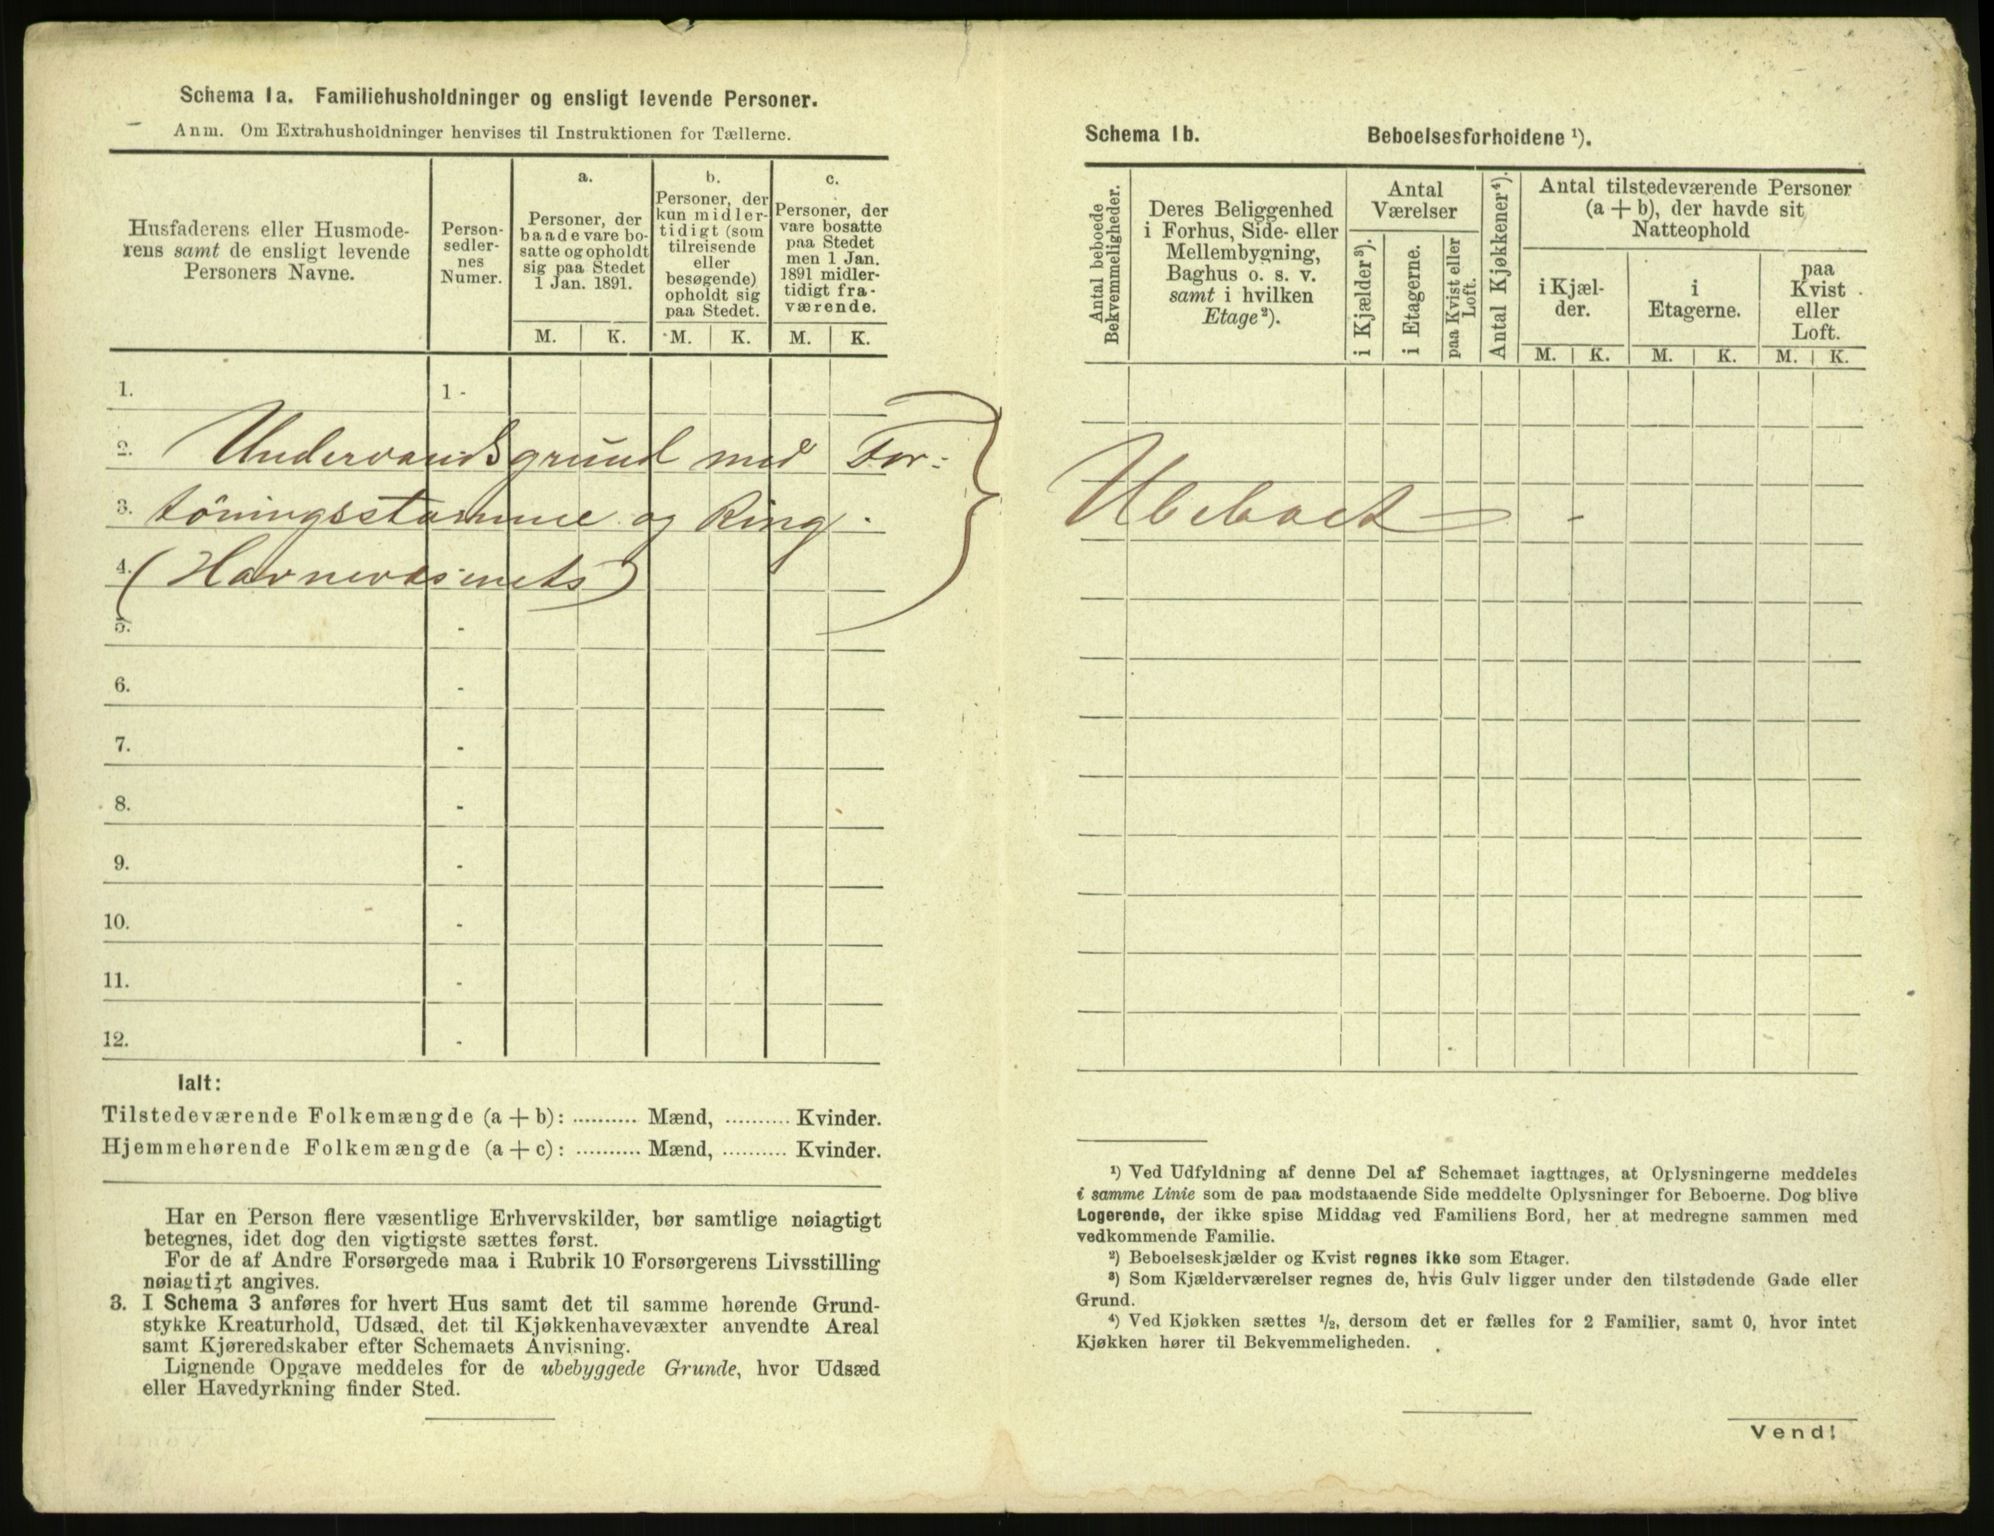 Schema 1a. Familiehusholdninger og ensligt levende Personer.
Anm. Om Extrahusholdninger henvises til Instruktionen for Tællerne.
Husfaderens eller Husmode-
rens samt de ensligt levende
Personers Navne.
Person-
sedler-
nes
Numer.
a.
Personer, der
baade vare bo-
satte og opholdt
sig paa Stedet
1 Jan. 1891.
b.
Personer, der
kun midler-
tidigt (som
tilreisende
eller
besøgende)
opholdt sig
paa Stedet.
c.
Personer, der
vare bosatte
paa Stedet
men 1 Jan.
1891 midler-
tidigt fra-
værende.
M. K. M. K. M. K.
1. 1 -
2. Undervandsgrund med For-
3. töiningsstamme og Ring.
4. (Havnevæsenets)
5. -
6. -
7. -
8. -
9. -
10. -
11. -
12. -
Ialt:
Tilstedeværende Folkemængde (a + b): .......... Mænd, .......... Kvinder.
Hjemmehørende Folkemængde (a + c): .......... Mænd, .......... Kvinder.
Har en Person flere væsentlige Erhvervskilder, bør samtlige nøiagtigt
betegnes, idet dog den vigtigste sættes først.
For de af Andre Forsørgede maa i Rubrik 10 Forsørgerens Livsstilling
nøiagtigt angives.
3. I Schema 3 anføres for hvert Hus samt det til samme hørende Grund-
stykke Kreaturhold, Udsæd, det til Kjøkkenhavevæxter anvendte Areal
samt Kjøreredskaber efter Schemaets Anvisning.
Lignende Opgave meddeles for de ubebyggede Grunde, hvor Udsæd
eller Havedyrkning finder Sted.
Schema 1b. Beboelsesforholdene ¹).
Antal beboede
Bekvemmeligheder.
Deres Beliggenhed
i Forhus, Side- eller
Mellembygning,
Baghus o. s. v.
samt i hvilken
Etage ²).
Antal
Værelser
i Kjælder ³).
i Etagerne.
paa Kvist eller
Loft.
Antal Kjøkkener ⁴).
Antal tilstedeværende Personer
(a + b), der havde sit
Natteophold
i Kjæl-
der.
i
Etagerne.
paa
Kvist
eller
Loft.
M. K. M. K. M. K.
Ubeboet -
¹) Ved Udfyldning af denne Del af Schemaet iagttages, at Oplysningerne meddeles
i samme Linie som de paa modstaaende Side meddelte Oplysninger for Beboerne. Dog blive
Logerende, der ikke spise Middag ved Familiens Bord, her at medregne sammen med
vedkommende Familie.
²) Beboelseskjælder og Kvist regnes ikke som Etager.
³) Som Kjælderværelser regnes de, hvis Gulv ligger under den tilstødende Gade eller
Grund.
⁴) Ved Kjøkken sættes ½, dersom det er fælles for 2 Familier, samt 0, hvor intet
Kjøkken hører til Bekvemmeligheden.
Vend!